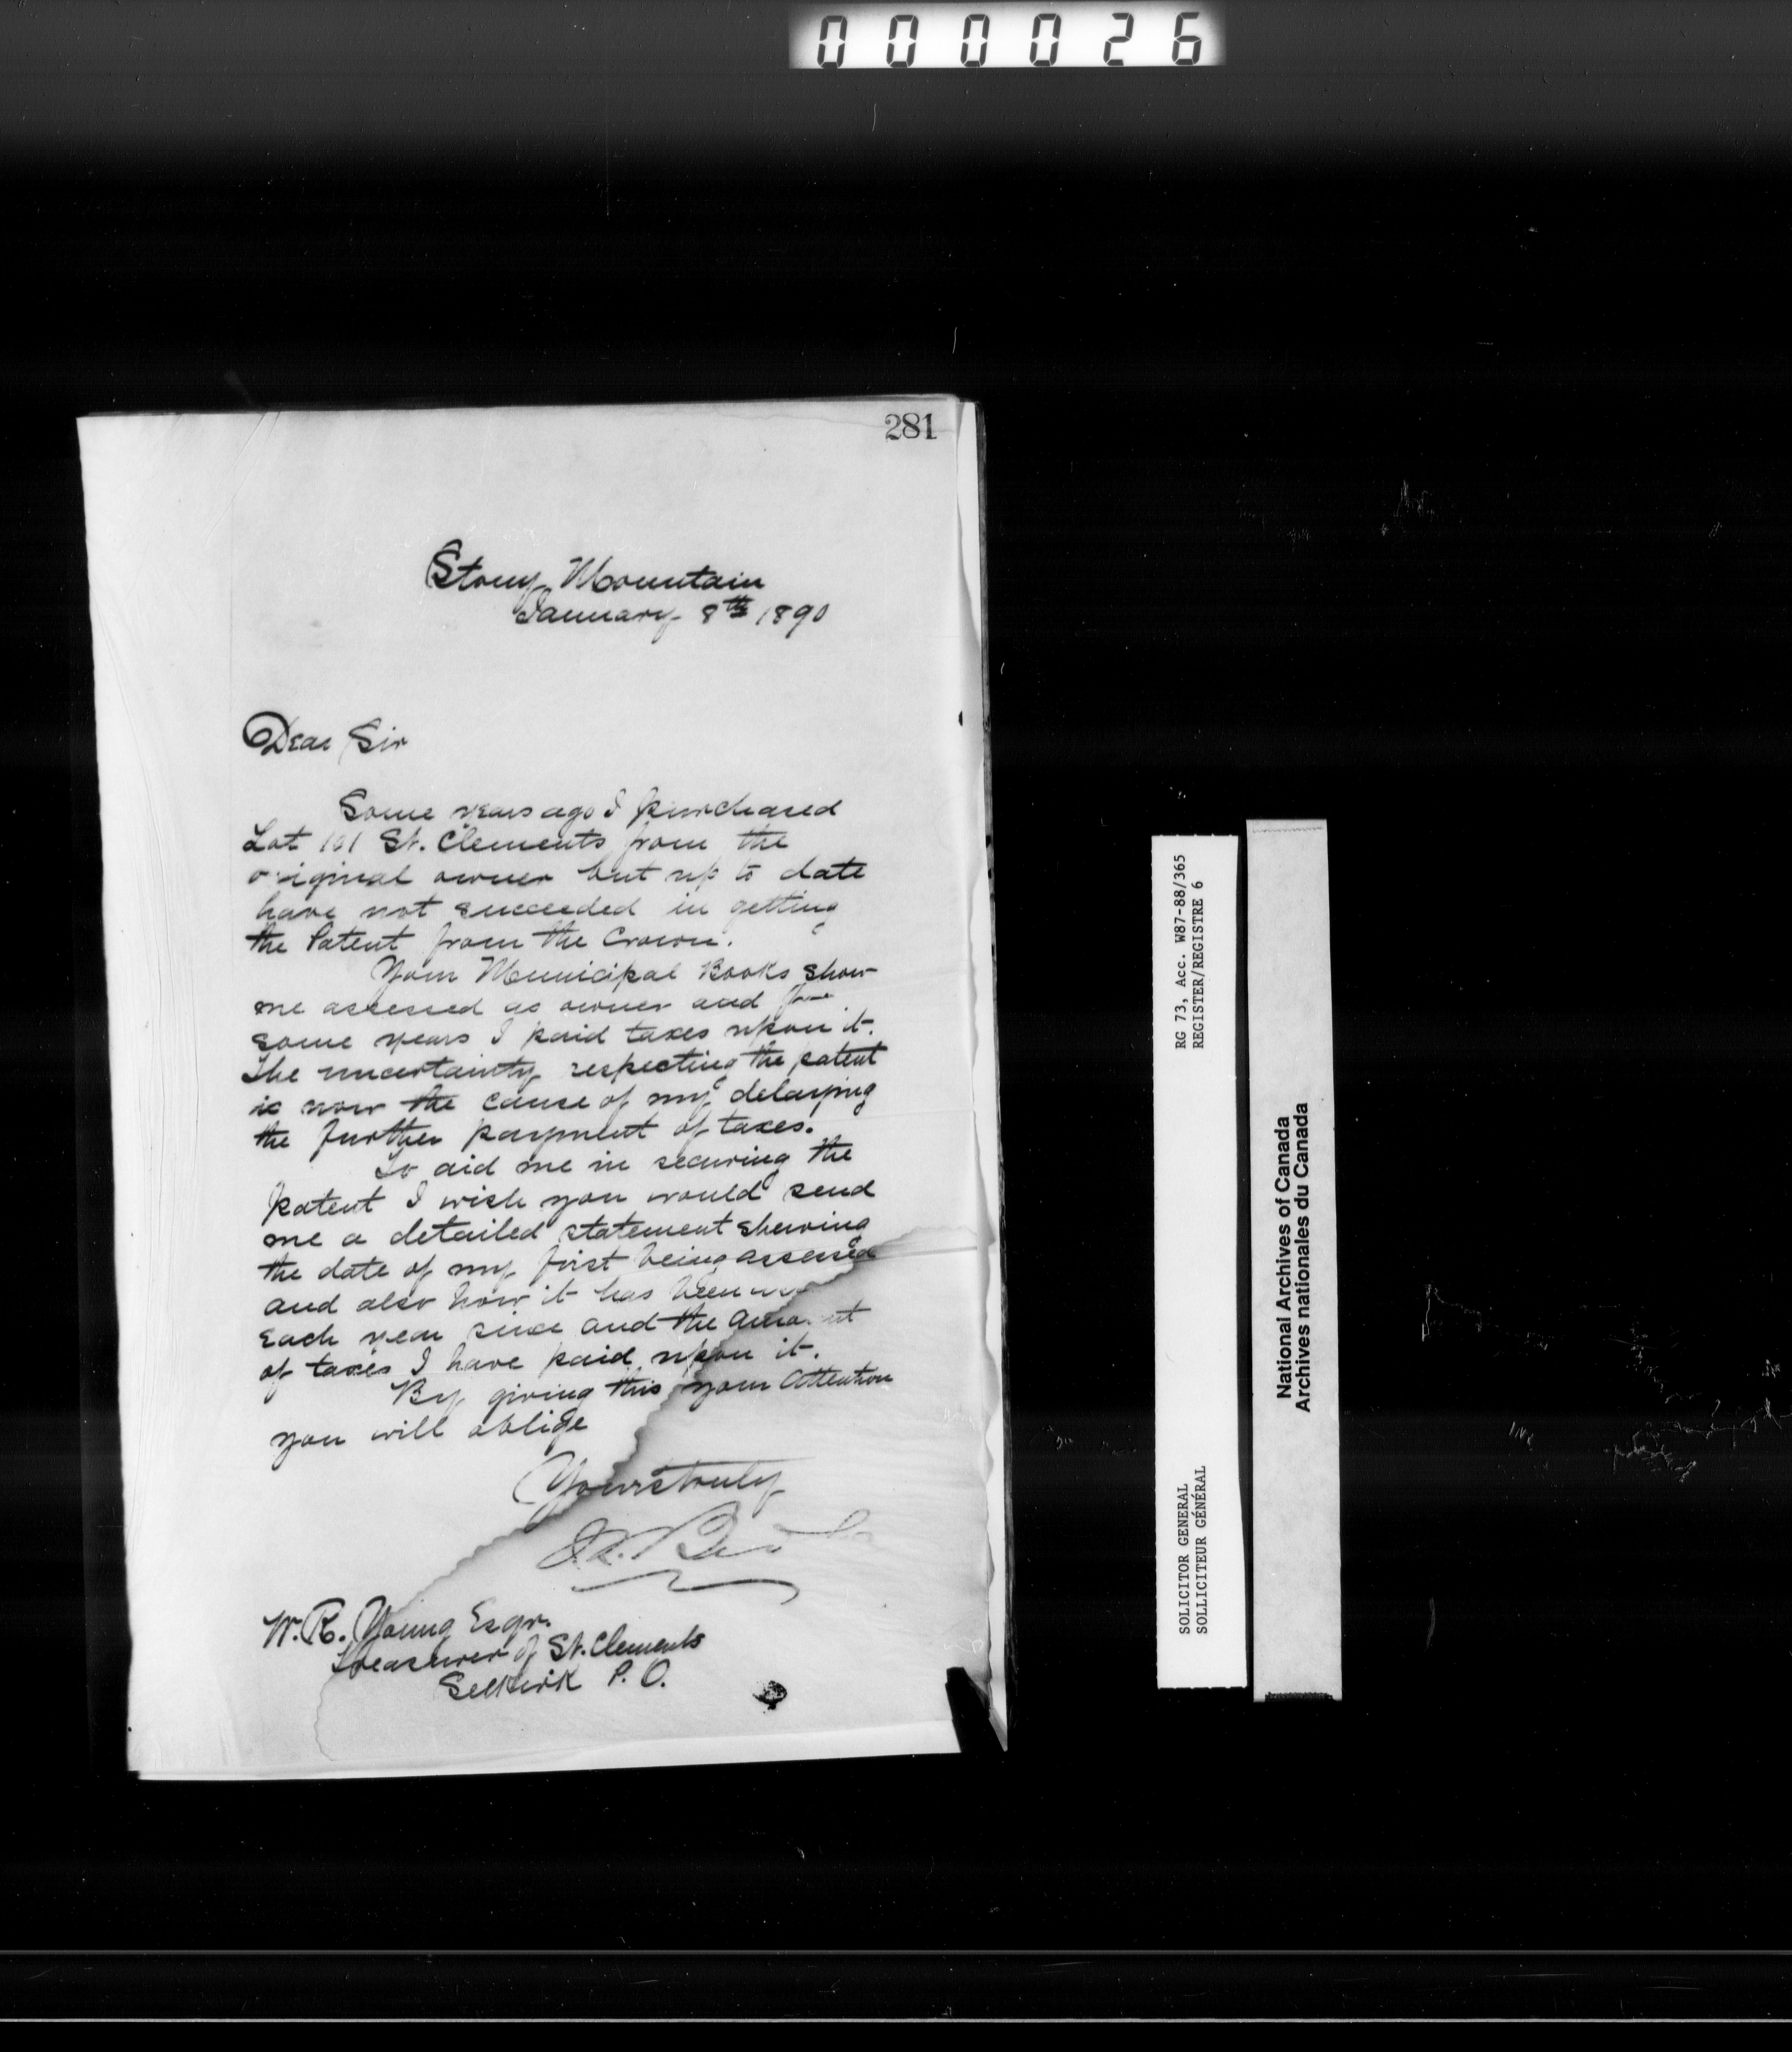 000026
281
Stony Mountain
January 8th 1890
Dear Sir
Some years ago I purchased
Lot 101 St. Clements from the
original owner but up to date
have not succeeded in getting
the Patent from the Crown.
Your Municipal Books show
me assessed as owner and for
some years I paid taxes upon it.
The uncertainty respecting the patent
is now the cause of my delaying
the further payment of taxes.
To aid me in securing the
patent I wish you would send
me a detailed statement shewing
the date of my first being assessed
and also how it has been
each year since and the amount
of taxes I have paid upon it.
By giving this your attention
you will oblige
Yours truly
W. R. Young Esqr.
Treasurer of St. Clements
Selkirk P. O.
RG 73, Acc. W87-88/365
REGISTER/REGISTRE 6
SOLICITOR GENERAL
SOLLICITEUR GÉNÉRAL
National Archives of Canada
Archives nationales du Canada